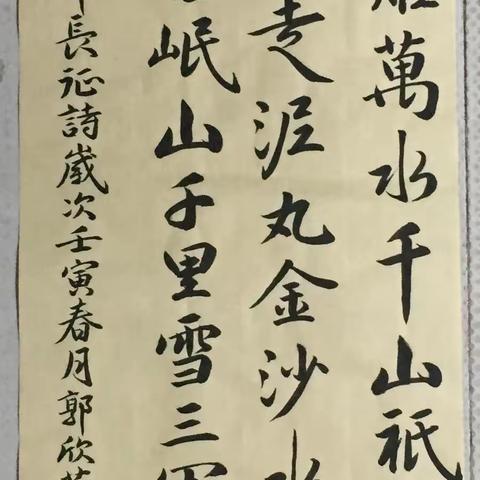 萬水千山祇
走泥丸金沙水
岷山千里雪三軍
長征詩歲次壬寅春月郭欣